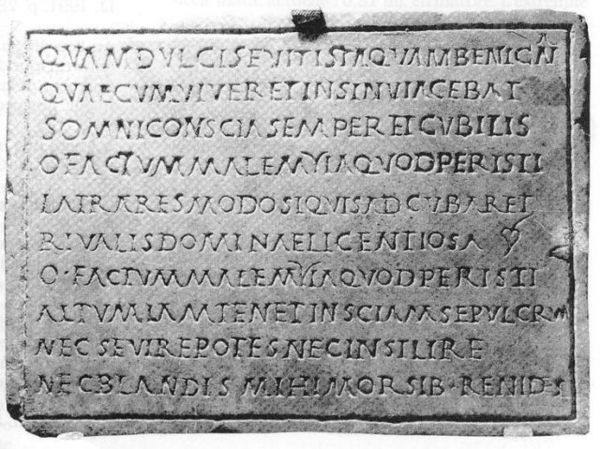 QVAMDVLCISFVITISTAQVAMBENIGNA
QVAECVMVIVERETINSINVIACEBAT
SOMNICONSCIASEMPERETCVBILIS
OFACTVMMALEMYIAQVODPERISTI
LATRARESMODOSIQVISADCVBARET
RIVALISDOMINAELICENTIOSA
O·FACTVMMALEMYIAQVODPERISTI
ALTVMIAMTENETINSCIAMSEPVLCRVM
NECSEVIREPOTESNECINSILIRE
NECBLANDIS MIHIMORSIB·RENIDES